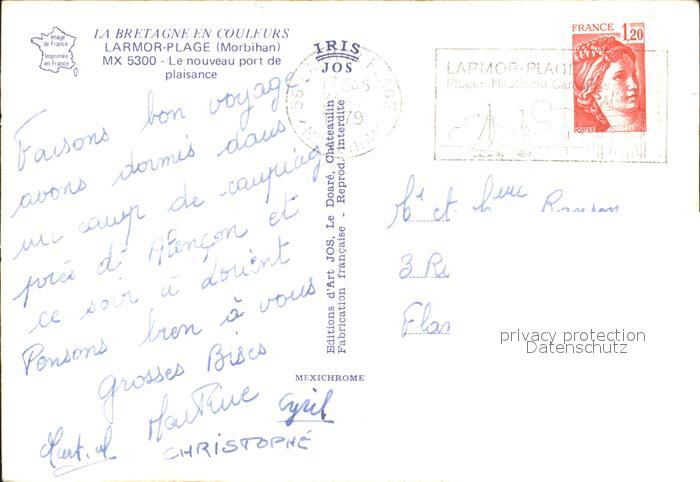 Image
de France
Imprimée
en France
LA BRETAGNE EN COULEURS
LARMOR-PLAGE (Morbihan)
MX 5300 - Le nouveau port de
plaisance
IRIS
JOS
Faisons bon voyage
avons dormis dans
un camp de camping
près d'Alençon et
ce soir à Lorient
Pensons bien à vous
Grosses Bises
Martial Martine Cyril
CHRISTOPHE
Editions d'Art JOS, Le Doaré, Châteaulin
Fabrication française - Reprod. interdite
MEXICHROME
79
LARMOR-PLAGE
FRANCE 1,20
POSTES
Mr et Mme
3 R
Fla
privacy protection
Datenschutz